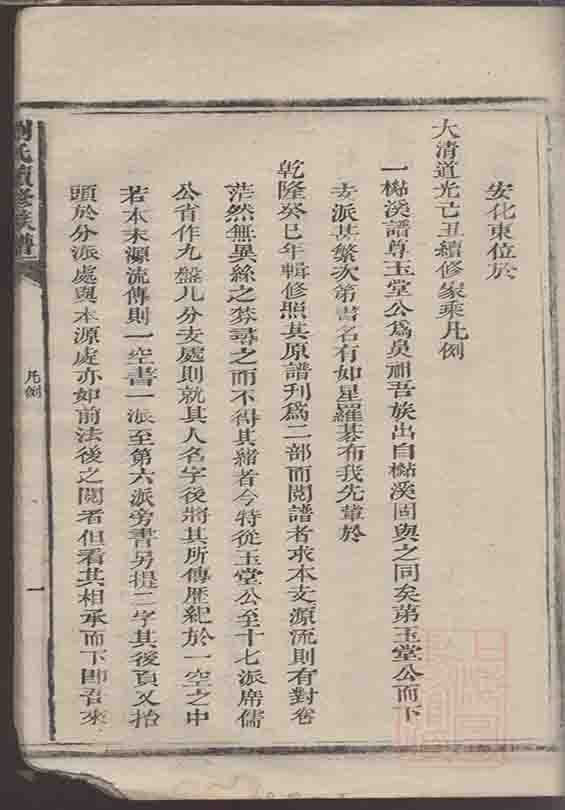 安化東位於
大清道光己丑續修家乘凡例
一樾溪譜尊玉堂公爲吳祖吾族出自樾溪固與之同矣第玉堂公而下
支派甚繁次第書名有如星羅碁布我先輩於
乾隆癸巳年輯修照其原譜刊爲二部而閱譜者求本支源流則有對卷
茫然無異絲之棼尋之而不得其緒者今特從玉堂公至十七派席儒
公省作九盤凡分支處則就其人名字後將其所傳歷紀於一空之中
若本末源流傳則一空書一派至第六派旁書另提二字其後頁又抬
頭於分派處與本源處亦如前法後之閱者但看其相承而下即吾來
氏續修族譜
凡例
一